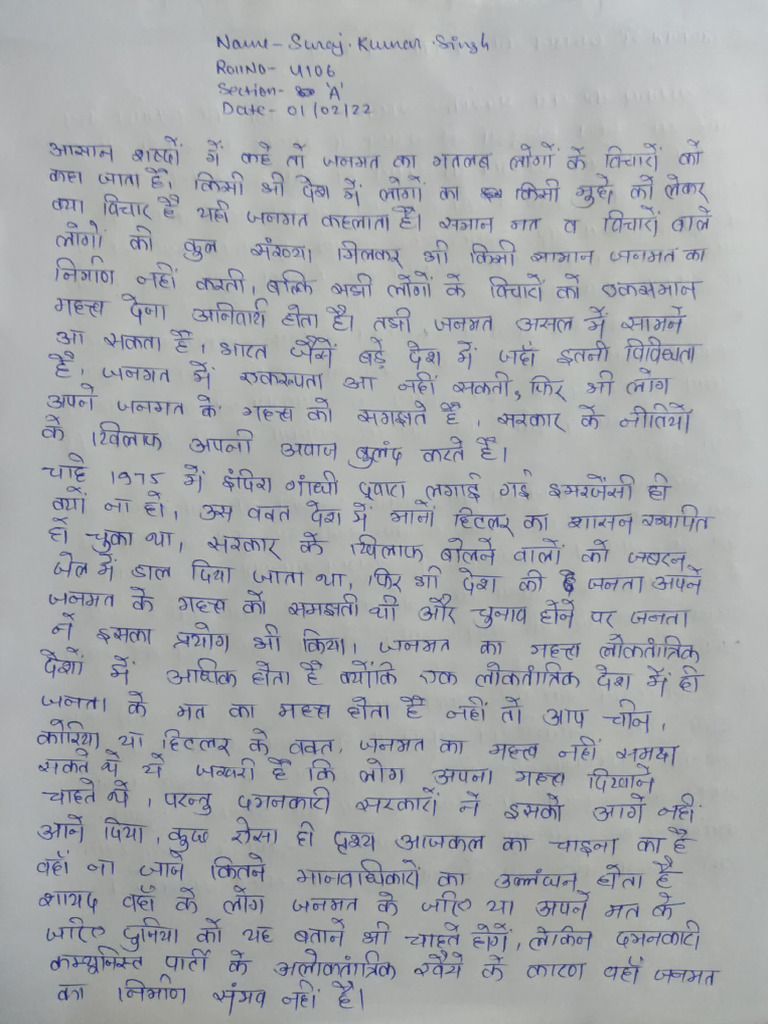 Name- Suraj. Kumar. Singh
Roll No- 4106
Section- 'A'
Date- 01/02/22
आसान शब्दों में कहे तो जनमत का मतलब लोगों के विचारों को
कहा जाता है। किसी भी देश में लोगों का किसी मुद्दे को लेकर
क्या विचार है यही जनमत कहलाता है। समान मत व विचारों वाले
लोगों की कुल संख्या मिलकर भी किसी सामान जनमत का
निर्माण नहीं करती, बल्कि सभी लोगों के विचारों को एकसमान
महत्त्व देना अनिवार्य होता है। तभी जनमत असल में सामने
आ सकता है, भारत जैसे बड़े देश में जहाँ इतनी विविधता
है, जनमत में एकरूपता आ नहीं सकती, फिर भी लोग
अपने जनमत के महत्त्व को समझते है, सरकार के नीतियों
के खिलाफ अपनी अवाज बुलंद करते है।
चाहे 1975 में इंदिरा गांधी द्वारा लगाई गई इमरजेंसी ही
क्यों ना हो, उस वक्त देश में मानों हिटलर का शासन स्थापित
हो चुका था, सरकार के खिलाफ बोलने वालों को जबरन
जेल में डाल दिया जाता था, फिर भी देश की जनता अपने
जनमत के महत्त्व को समझती थी और चुनाव होने पर जनता
ने इसका प्रयोग भी किया। जनमत का महत्त्व लोकतांत्रिक
देशों में अधिक होता है क्योंकि एक लोकतांत्रिक देश में ही
जनता के मत का महत्त्व होता है नहीं तो आप चीन,
कोरिया या हिटलर के वक्त, जनमत का महत्त्व नहीं समझ
सकते थे ये जरूरी है कि लोग अपना महत्त्व दिखाने
चाहते थे, परन्तु दमनकारी सरकारों ने इसको आगे नहीं
आने दिया, कुछ ऐसा ही दृश्य आजकल का चाइना का है
वहाँ ना जाने कितने मानवाधिकारों का उल्लंघन होता है
शायद वहाँ के लोग जनमत के जरिए या अपने मत के
जरिए दुनिया को यह बताने भी चाहते होगें, लेकिन दमनकारी
कम्युनिस्ट पार्टी के अलोकतांत्रिक रवैये के कारण वहाँ जनमत
का निर्माण संभव नहीं है।